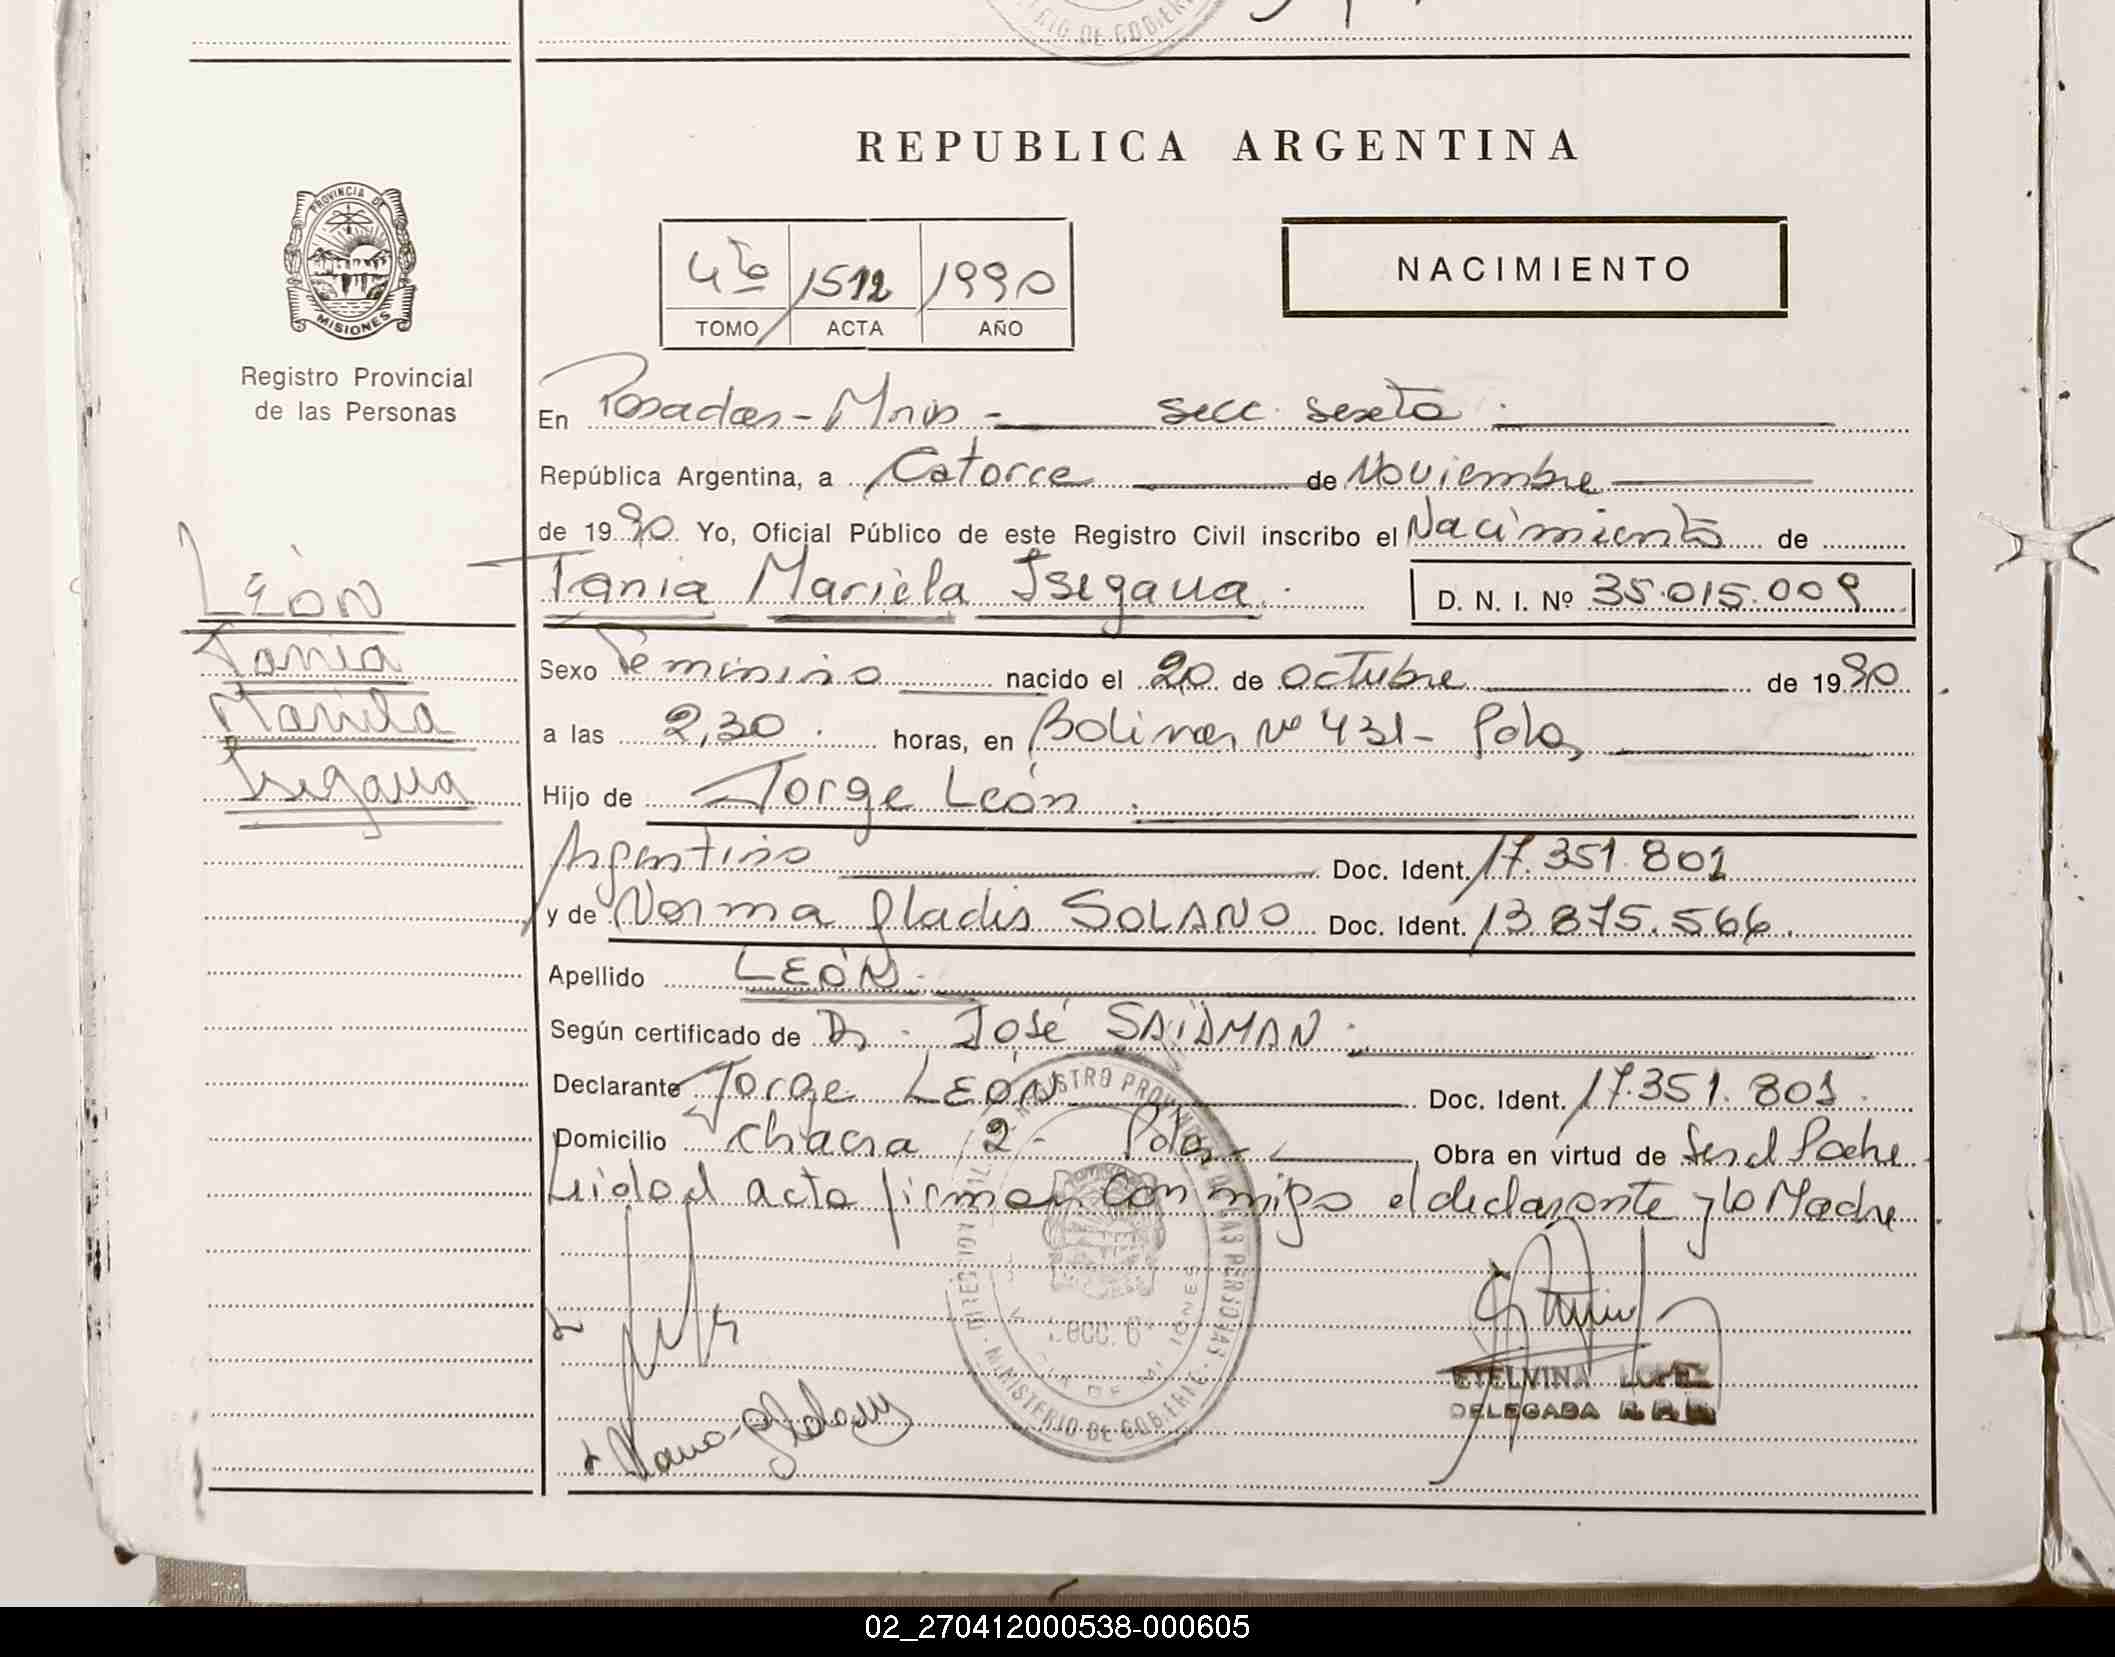 RIO DE GOBIER
REPUBLICA ARGENTINA
PROVINCIA DE
MISIONES
Registro Provincial
de las Personas
4to 1512 1990
TOMO ACTA AÑO
NACIMIENTO
En Posadas - Mnes - secc. sexta.
República Argentina, a Catorce de Noviembre
de 1990. Yo, Oficial Público de este Registro Civil inscribo el Nacimiento de
Tania Mariela Isegaua. D. N. I. Nº 35.015.009
León
Tania
Mariela
Isegaua
Sexo Femenino nacido el 20 de octubre de 1990
a las 2,30. horas, en Nº 431 - Pdas
Hijo de Jorge León.
Argentino Doc. Ident. 17.351.801
y de Norma Gladis SOLANO Doc. Ident. 13.875.566.
Apellido LEÓN.
Según certificado de Dr. José SAIDMAN.
Declarante Jorge LEÓN Doc. Ident. 17.351.801.
Domicilio chacra 2 - Pdas - Obra en virtud de Ser el Padre
Leido el acta firman con migo el declarante y la Madre
DIRECCION REGISTRO PROVINCIAL DE LAS PERSONAS
SECC. 6
MINISTERIO DE GOBIERNO
ETELVINA LOPEZ
DELEGADA R.P.P.
02_270412000538-000605